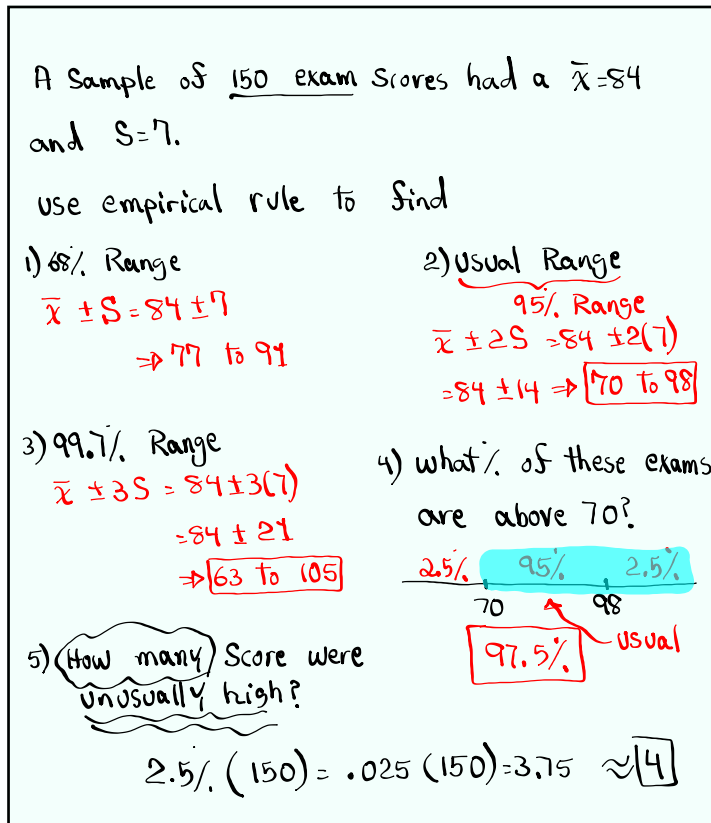 A Sample of 150 exam Scores had a x̄=84
and S=7.
use empirical rule to find
1) 68% Range
x̄ ± S = 84 ± 7
⇒ 77 to 91
2) Usual Range
95% Range
x̄ ± 2S = 84 ± 2(7)
= 84 ± 14 ⇒ 70 to 98
3) 99.7% Range
x̄ ± 3S = 84 ± 3(7)
= 84 ± 21
⇒ 63 to 105
4) what % of these exams
are above 70?
2.5% 95% 2.5%
70 98
usual
97.5%
5) How many Score were
unusually high?
2.5% (150) = .025 (150) = 3.75 ≈ 4